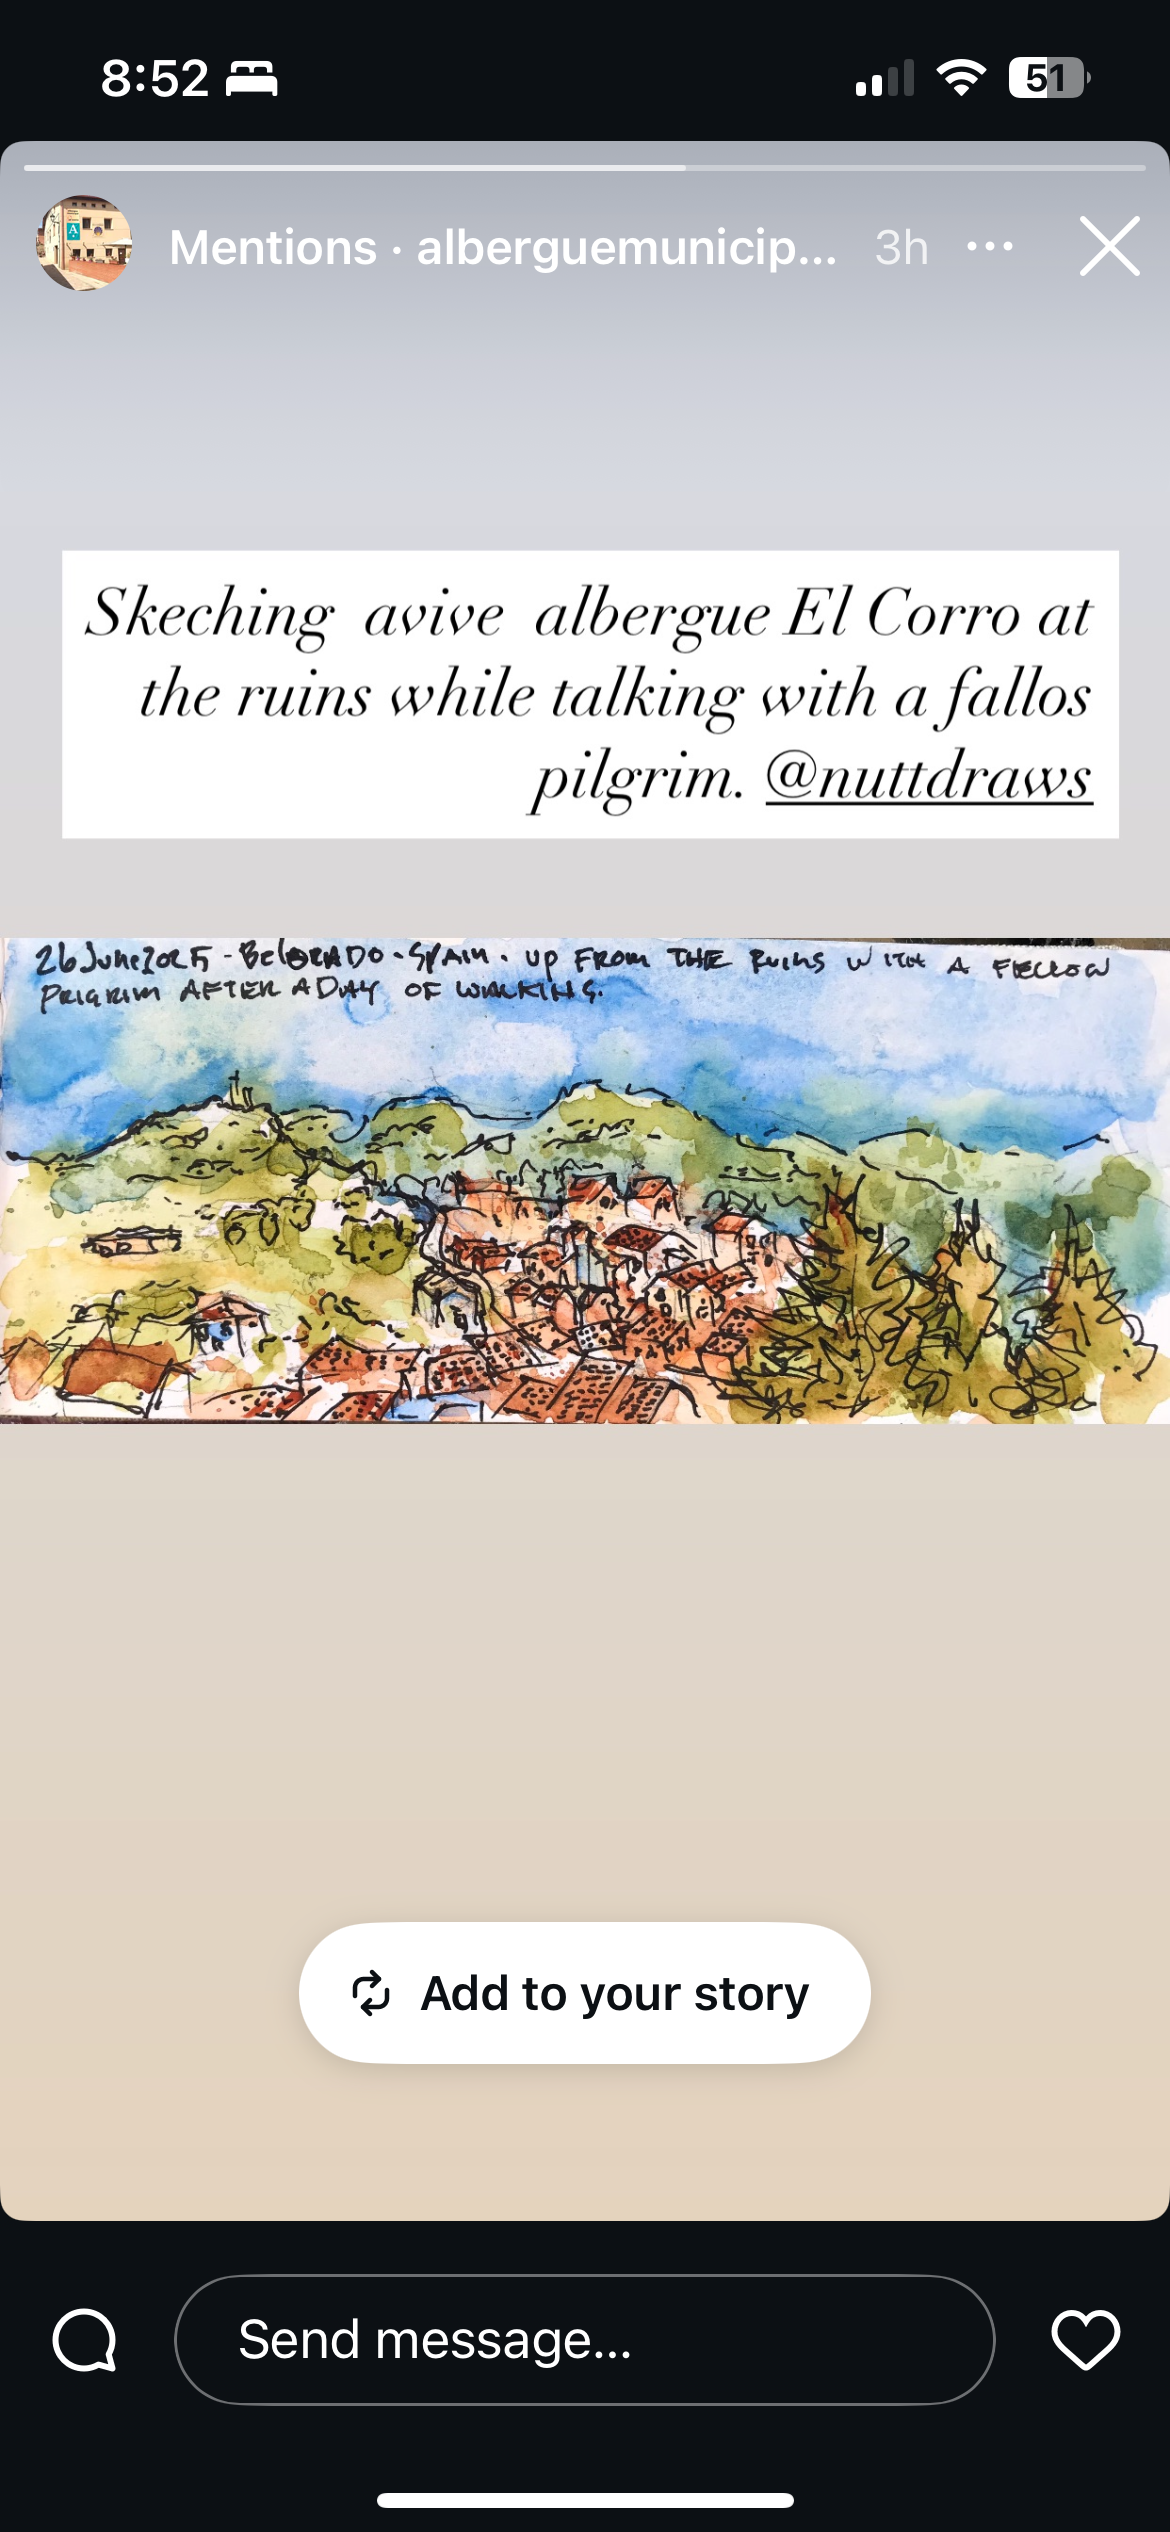 8:52
51
Mentions · alberguemunicip... 3h
Skeching avive albergue El Corro at
the ruins while talking with a fallos
pilgrim. @nuttdraws
26 June 2025 - BelORADO - SPAIN. UP FROM THE RUINS WITH A FELLOW
PILGRIM AFTER A DAY OF WALKING.
Add to your story
Send message...